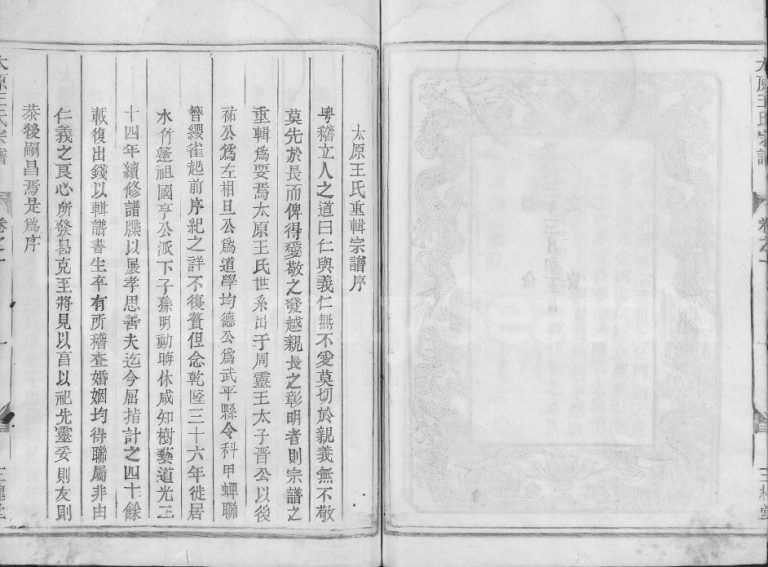 太原王氏重輯宗譜序
粵稽立人之道曰仁與義仁無不愛莫切於親義無不敬
莫先於長而俾得愛敬之發越親長之彰明者則宗譜之
重輯爲要焉太原王氏世系出于周靈王太子晉公以後
祐公爲左相旦公爲道學均德公爲武平縣令科甲蟬聯
簪纓雀起前序紀之詳不復贅但念乾隆三十六年徙居
水竹蓬祖國亨公派下子孫明動晦休咸知樹藝道光二
十四年續修譜牒以展孝思善夫迄今屈指計之四十餘
載復出錢以輯譜書生卒有所稽查婚姻均待聯屬非由
仁義之良心所發曷克至將見以言以祀先靈妥則友則
恭後嗣昌焉是爲序
太原王氏宗譜
卷之一
三槐堂